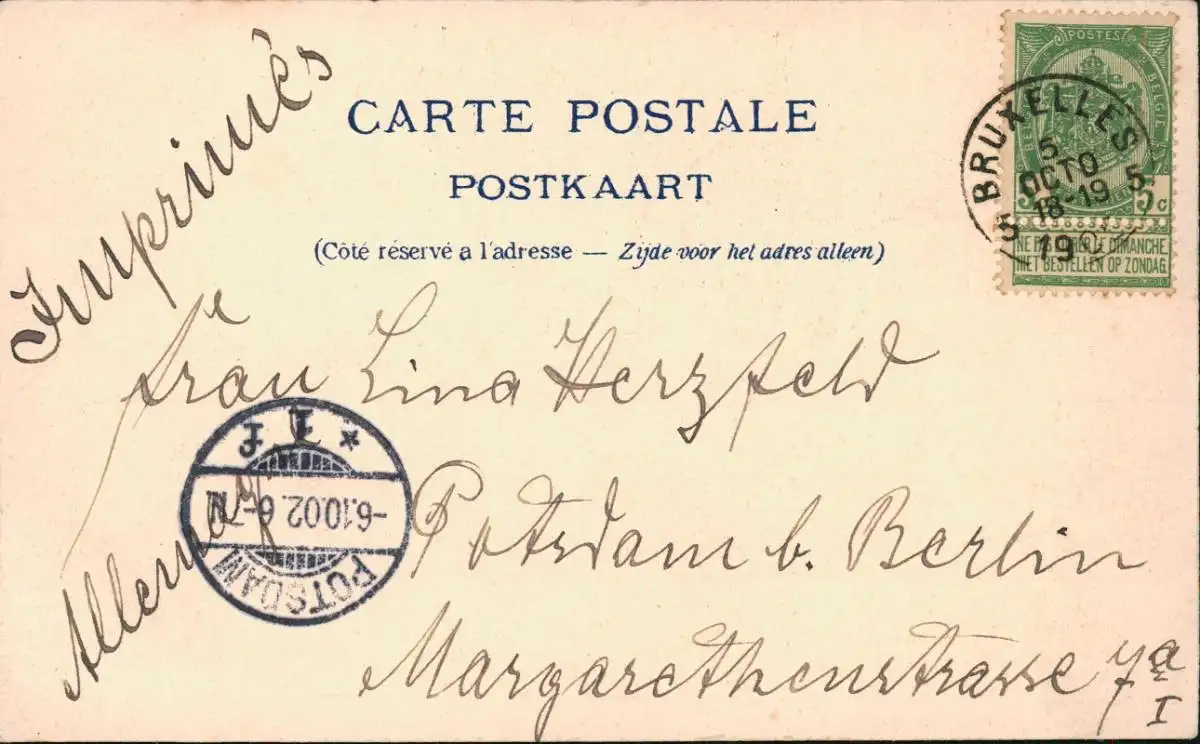 Imprimés
CARTE POSTALE
POSTKAART
(Côté réservé a l'adresse — Zijde voor het adres alleen)
POSTES
BELGIE
5 5c
NE PAS LIVRER LE DIMANCHE
NIET BESTELLEN OP ZONDAG
BRUXELLES
5
OCTO
18-19
5 5
19
Frau Lina Herzfeld
Potsdam b. Berlin
Margarethenstrasse 7a
I
Allemag
POTSDAM
-6.10.02.6-7N.
* 1 f